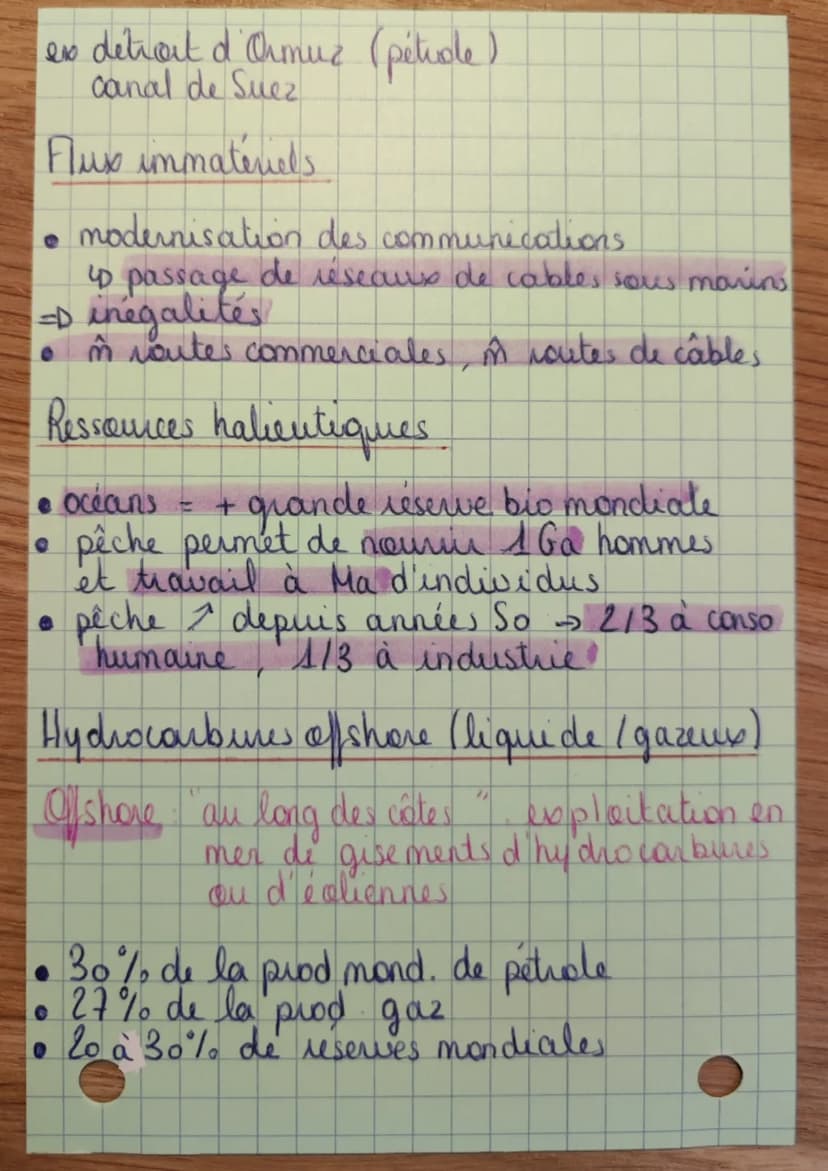 ex détroit d'Ormuz (pétrole)
canal de Suez
Flux immatériels
• modernisation des communications
↳ passage de réseaux de cables sous marins
=> inégalités
• m̂ routes commerciales, m̂ routes de câbles
Ressources halieutiques
• océans = + grande réserve bio mondiale
• pêche permet de nourrir 1 Ga hommes
et travail à Ma d'individus
• pêche ↗ depuis années 50 → 2/3 à conso
humaine, 1/3 à industrie
Hydrocarbures offshore (liquide / gazeux)
Offshore : "au long des côtes", exploitation en
mer de gisements d'hydrocarbures
ou d'éoliennes
• 30% de la prod mond. de pétrole
• 27% de la prod. gaz
• 20 à 30% de réserves mondiales